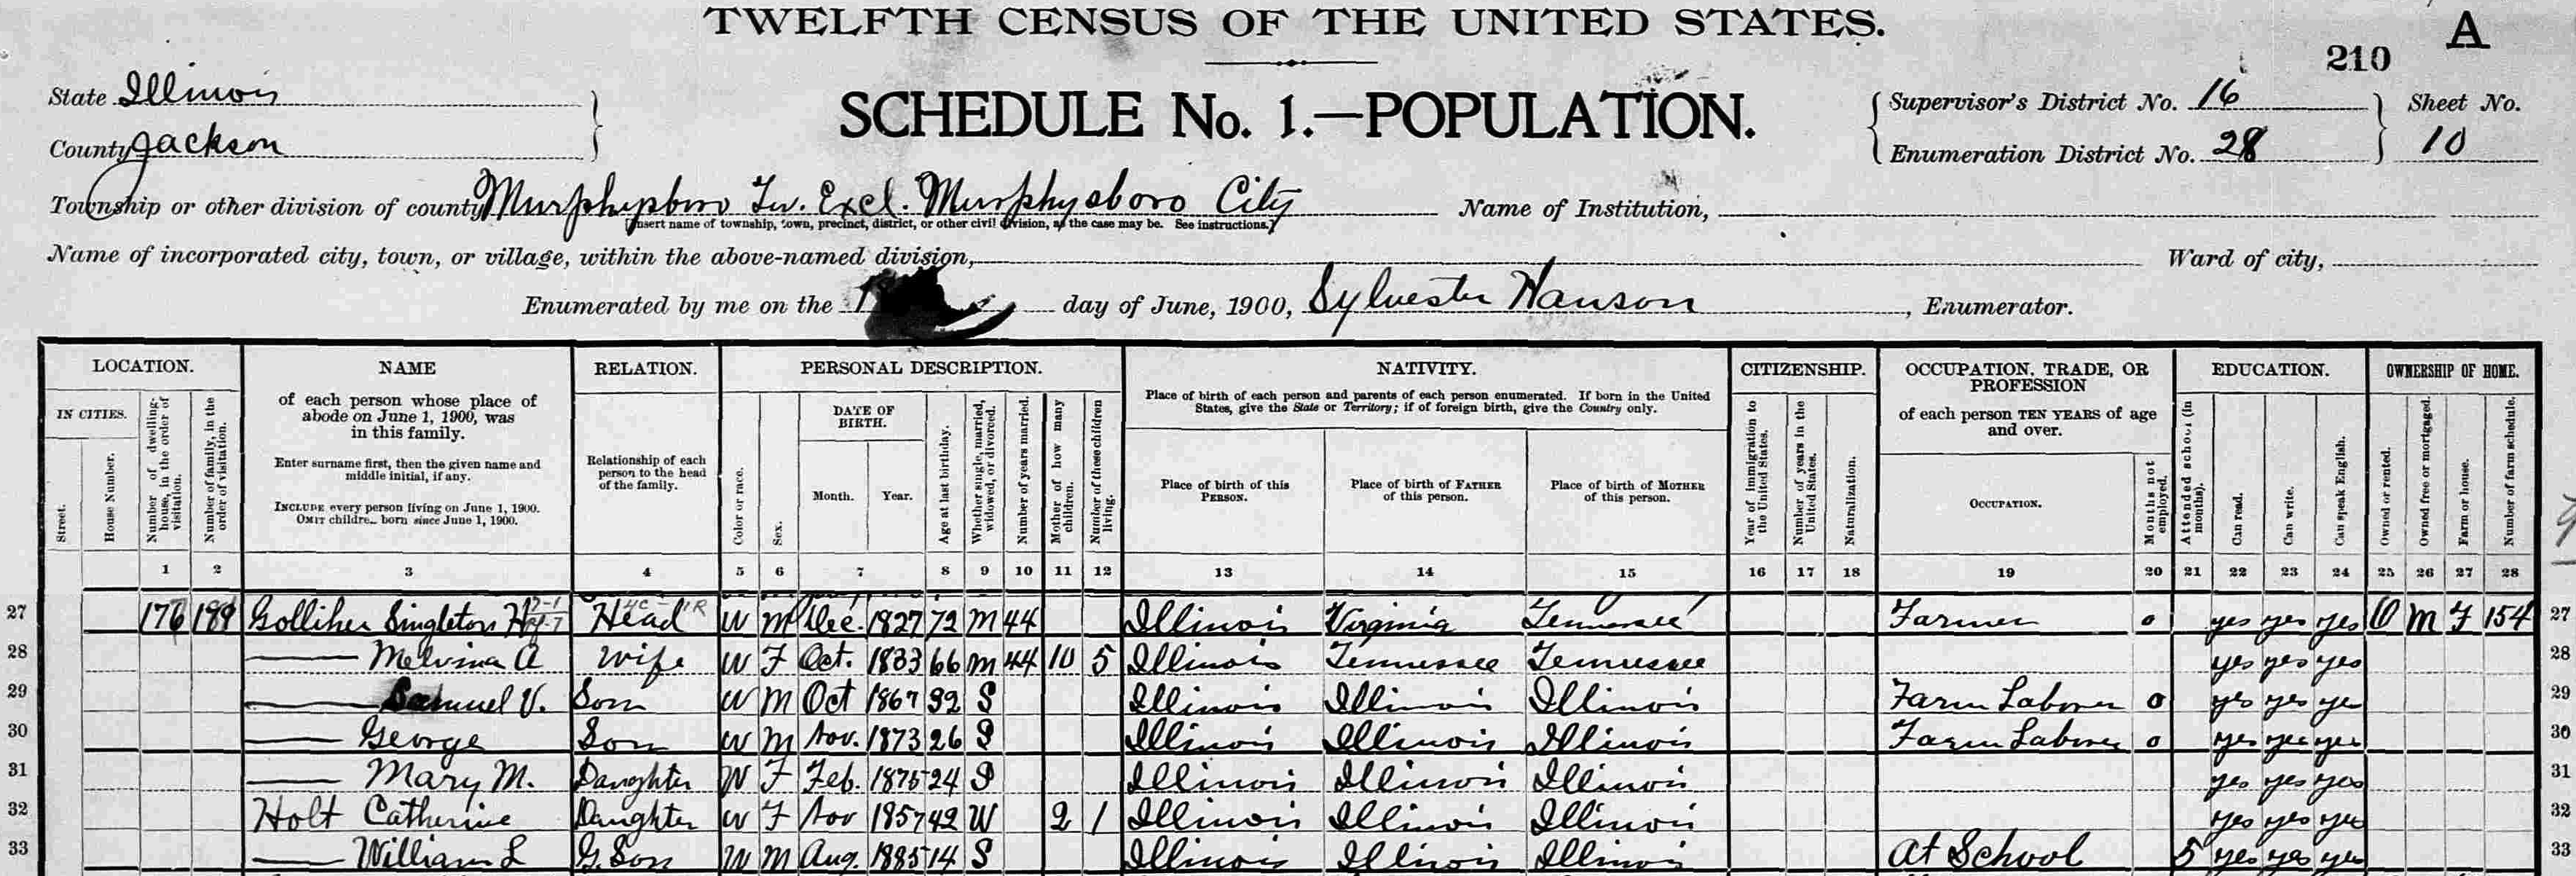 TWELFTH CENSUS OF THE UNITED STATES.
A
210
State Illinois
County Jackson
SCHEDULE No. 1.—POPULATION.
Supervisor's District No. 16
Enumeration District No. 28
Sheet No.
10
Township or other division of county Murphysboro Tw. Excl. Murphysboro City
Name of Institution,
[Insert name of township, town, precinct, district, or other civil division, as the case may be. See instructions.]
Name of incorporated city, town, or village, within the above-named division,
Ward of city,
Enumerated by me on the 1 day of June, 1900, Sylvester Hanson, Enumerator.
LOCATION. NAME RELATION. PERSONAL DESCRIPTION. NATIVITY. CITIZENSHIP. OCCUPATION, TRADE, OR PROFESSION EDUCATION. OWNERSHIP OF HOME.
IN CITIES.
Street.
House Number.
Number of dwelling-house, in the order of visitation.
Number of family, in the order of visitation.
of each person whose place of abode on June 1, 1900, was in this family.
Enter surname first, then the given name and middle initial, if any.
INCLUDE every person living on June 1, 1900.
OMIT children born since June 1, 1900.
Relationship of each person to the head of the family.
Color or race.
Sex.
DATE OF BIRTH.
Month. Year.
Age at last birthday.
Whether single, married, widowed, or divorced.
Number of years married.
Mother of how many children.
Number of these children living.
Place of birth of each person and parents of each person enumerated. If born in the United States, give the State or Territory; if of foreign birth, give the Country only.
Place of birth of this PERSON.
Place of birth of FATHER of this person.
Place of birth of MOTHER of this person.
Year of immigration to the United States.
Number of years in the United States.
Naturalization.
of each person TEN YEARS of age and over.
OCCUPATION.
Months not employed.
Attended school (in months).
Can read.
Can write.
Can speak English.
Owned or rented.
Owned free or mortgaged.
Farm or house.
Number of farm schedule.
1 2 3 4 5 6 7 8 9 10 11 12 13 14 15 16 17 18 19 20 21 22 23 24 25 26 27 28
27 176 189 Golliher Singleton H Head W M Dec. 1827 72 M 44 Illinois Virginia Tennessee Farmer 0 yes yes yes O M F 154 27
28 —— Melvina A Wife W F Oct. 1833 66 M 44 10 5 Illinois Tennessee Tennessee yes yes yes 28
29 —— Samuel V. Son W M Oct 1867 32 S Illinois Illinois Illinois Farm Laborer 0 yes yes yes 29
30 —— George Son W M Nov. 1873 26 S Illinois Illinois Illinois Farm Laborer 0 yes yes yes 30
31 —— Mary M. Daughter W F Feb. 1875 24 S Illinois Illinois Illinois yes yes yes 31
32 Holt Catherine Daughter W F Nov 1857 42 W 2 1 Illinois Illinois Illinois yes yes yes 32
33 —— William L G. Son W M Aug. 1885 14 S Illinois Illinois Illinois At School 5 yes yes yes 33